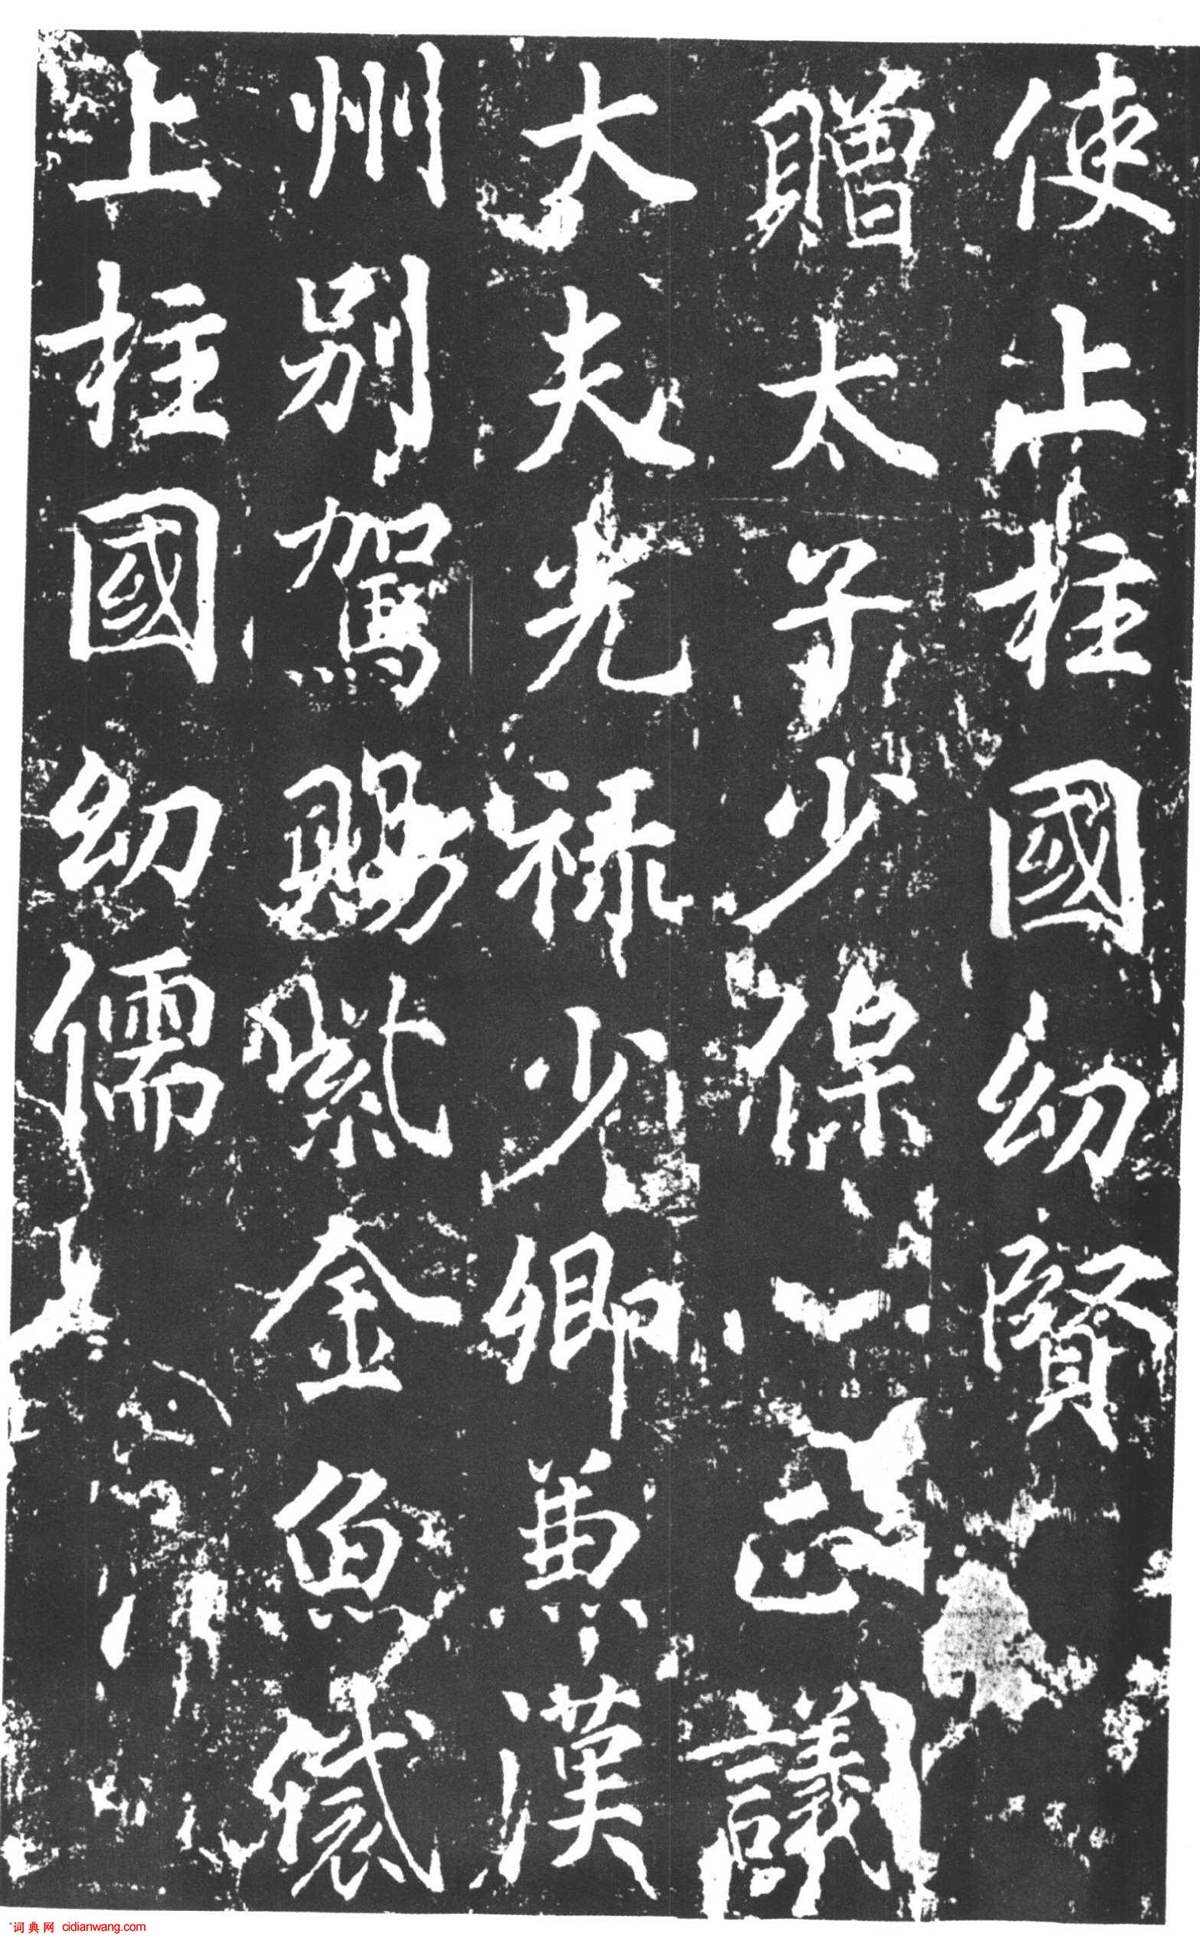 使上柱國幼賢
贈太子少保一正議
大夫光祿少卿兼漢
州別駕賜紫金魚袋
上柱國幼儒
词典网 cidianwang.com